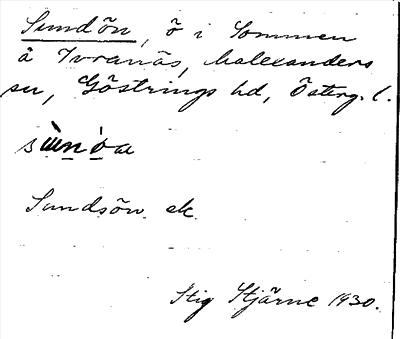 Sundön, ö i Sommen
å Ivranäs, Malexanders
sn, Göstrings hd, Österg. l.
Sundsön. ek.
Stig Stjärne 1930.